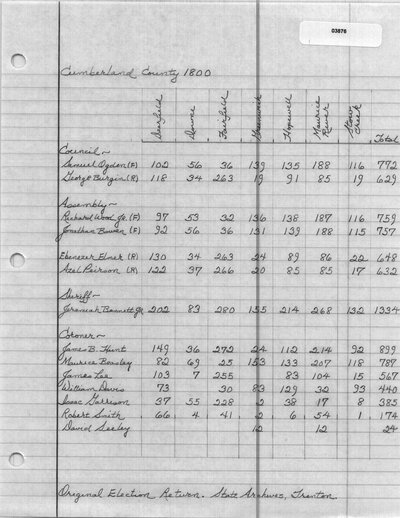 03876
Cumberland County 1800
Deerfield Downe Fairfield Greenwich Hopewell Maurice River Stow Creek Total
Council~
Samuel Ogden (F) 102 56 36 139 135 188 116 772
George Burgin (R) 118 34 263 19 91 85 19 629
Assembly~
Richard Wood Jr. (F) 97 53 32 136 138 187 116 759
Jonathan Bowen (F) 92 56 36 131 139 188 115 757
Ebenezer Elmer (R) 130 34 263 24 89 86 22 648
Azel Peirson (R) 122 37 266 20 85 85 17 632
Sheriff~
Jeremiah Bennett Jr. 202 83 280 155 214 268 132 1334
Coroner~
James B. Hunt 149 36 272 24 112 214 92 899
Maurice Beasley 82 69 25 153 133 207 118 787
James Lee 103 7 255 83 104 15 567
William Davis 73 30 83 129 32 93 440
Isaac Garrison 37 55 228 2 38 17 8 385
Robert Smith 66 4 41 2 6 54 1 174
David Seeley 12 12 24
Original Election Return. State Archives, Trenton.